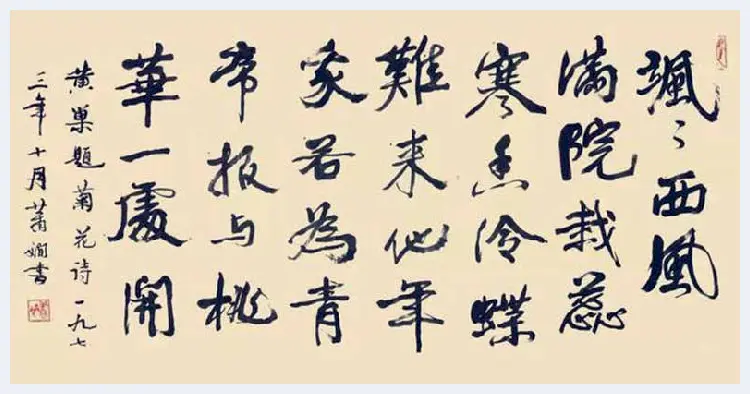 颯々西風
滿院栽蕊
寒香冷蝶
難来他年
我若為青
帝报与桃
華一處開
黄巢題菊花诗一九七
三年十月蕭嫻書